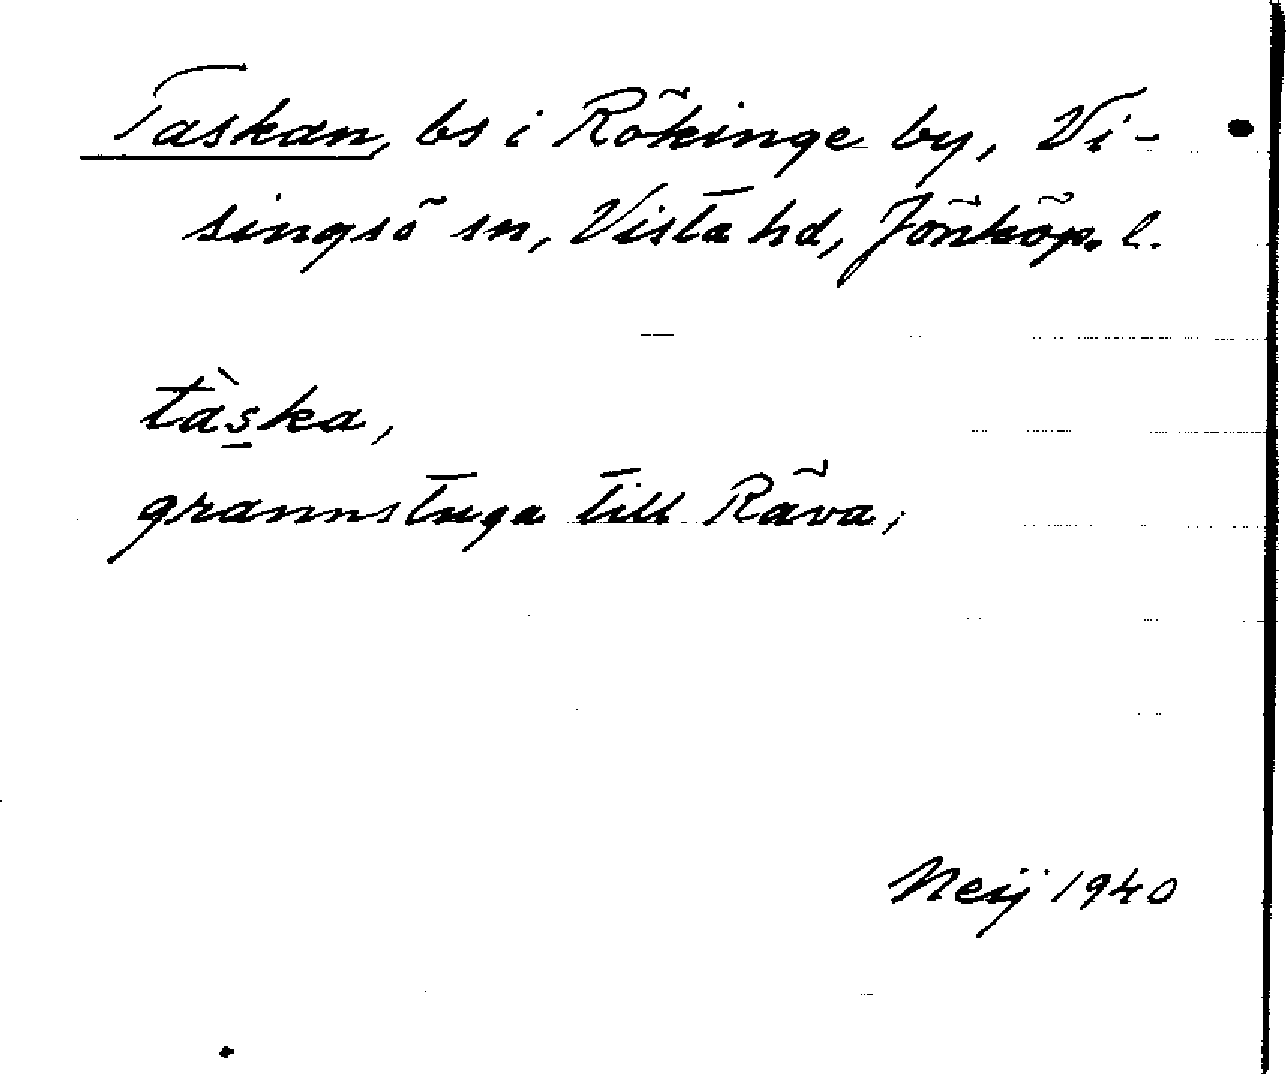 Taskan, bs i Rökinge by, Vi-
singsö sn, Vista hd, Jönköp. l.
tàs̲ka,
grannstuga till Räva,
Neij 1940